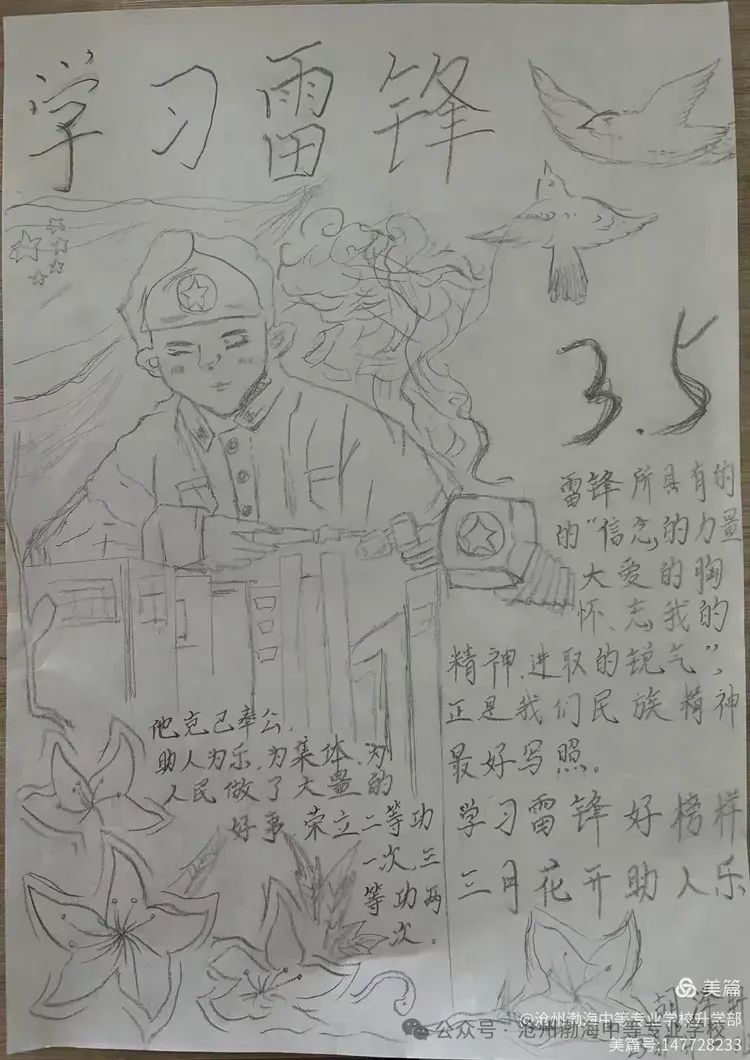 学习雷锋
3.5
雷锋所具有的
的“信念的力量
大爱的胸
怀、忘我的
精神、进取的锐气”,
正是我们民族精神
最好写照。
学习雷锋好榜样
三月花开助人乐
他克己奉公,
助人为乐,为集体、为
人民做了大量的
好事 荣立二等功
一次,三
等功两
次。
美篇
@沧州渤海中等专业学校升学部
公众号·沧州渤海中等专业学校
美篇号:147728233